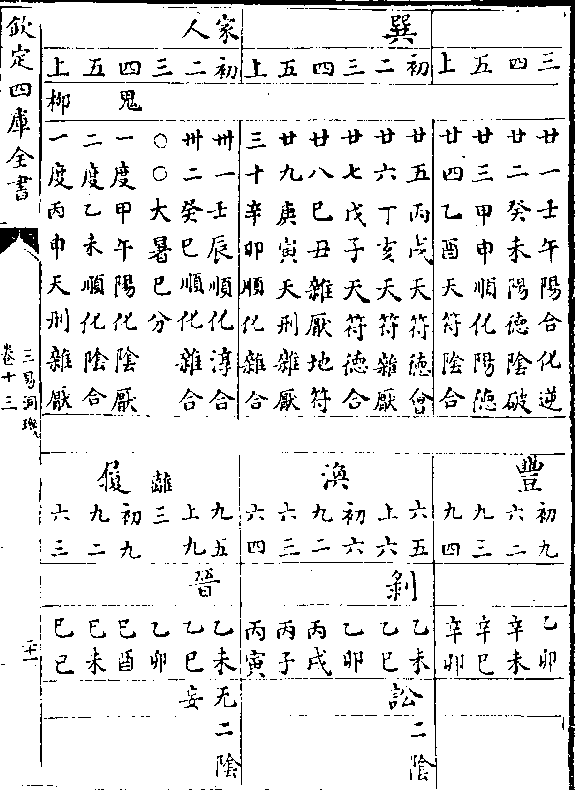 巽
家人
三 四 五 上 初 二 三 四 五 上 初 二 三 四 五 上
鬼 柳
廿一壬午陽合化逆
廿二癸未陽德陰破
廿三甲申順化陽德
廿四乙酉天符陰合
廿五丙戌天符德會
廿六丁亥天符雜厭
廿七戊子天符德合
廿八己丑雜厭地符
廿九庚寅天刑雜厭
三十辛卯順化雜合
卅一壬辰順化淳合
卅二癸巳順化雜合
○○大暑巳分
一度甲午陽化陰厭
二度乙未順化陰合
一度丙申天刑雜厭
豐
渙
離
履
初九 六二 九三 九四 六五 上六 初六 九二 六三 六四 九五 上九 三 初九 九二 六三
剝
晉
乙卯 辛未 辛巳 辛卯 乙未 乙巳 乙卯 丙戌 丙子 丙寅 乙未 乙巳 乙卯 己酉 己未 己巳
訟二陰
无妄二陰
欽定四庫全書
三易洞璣
卷十三